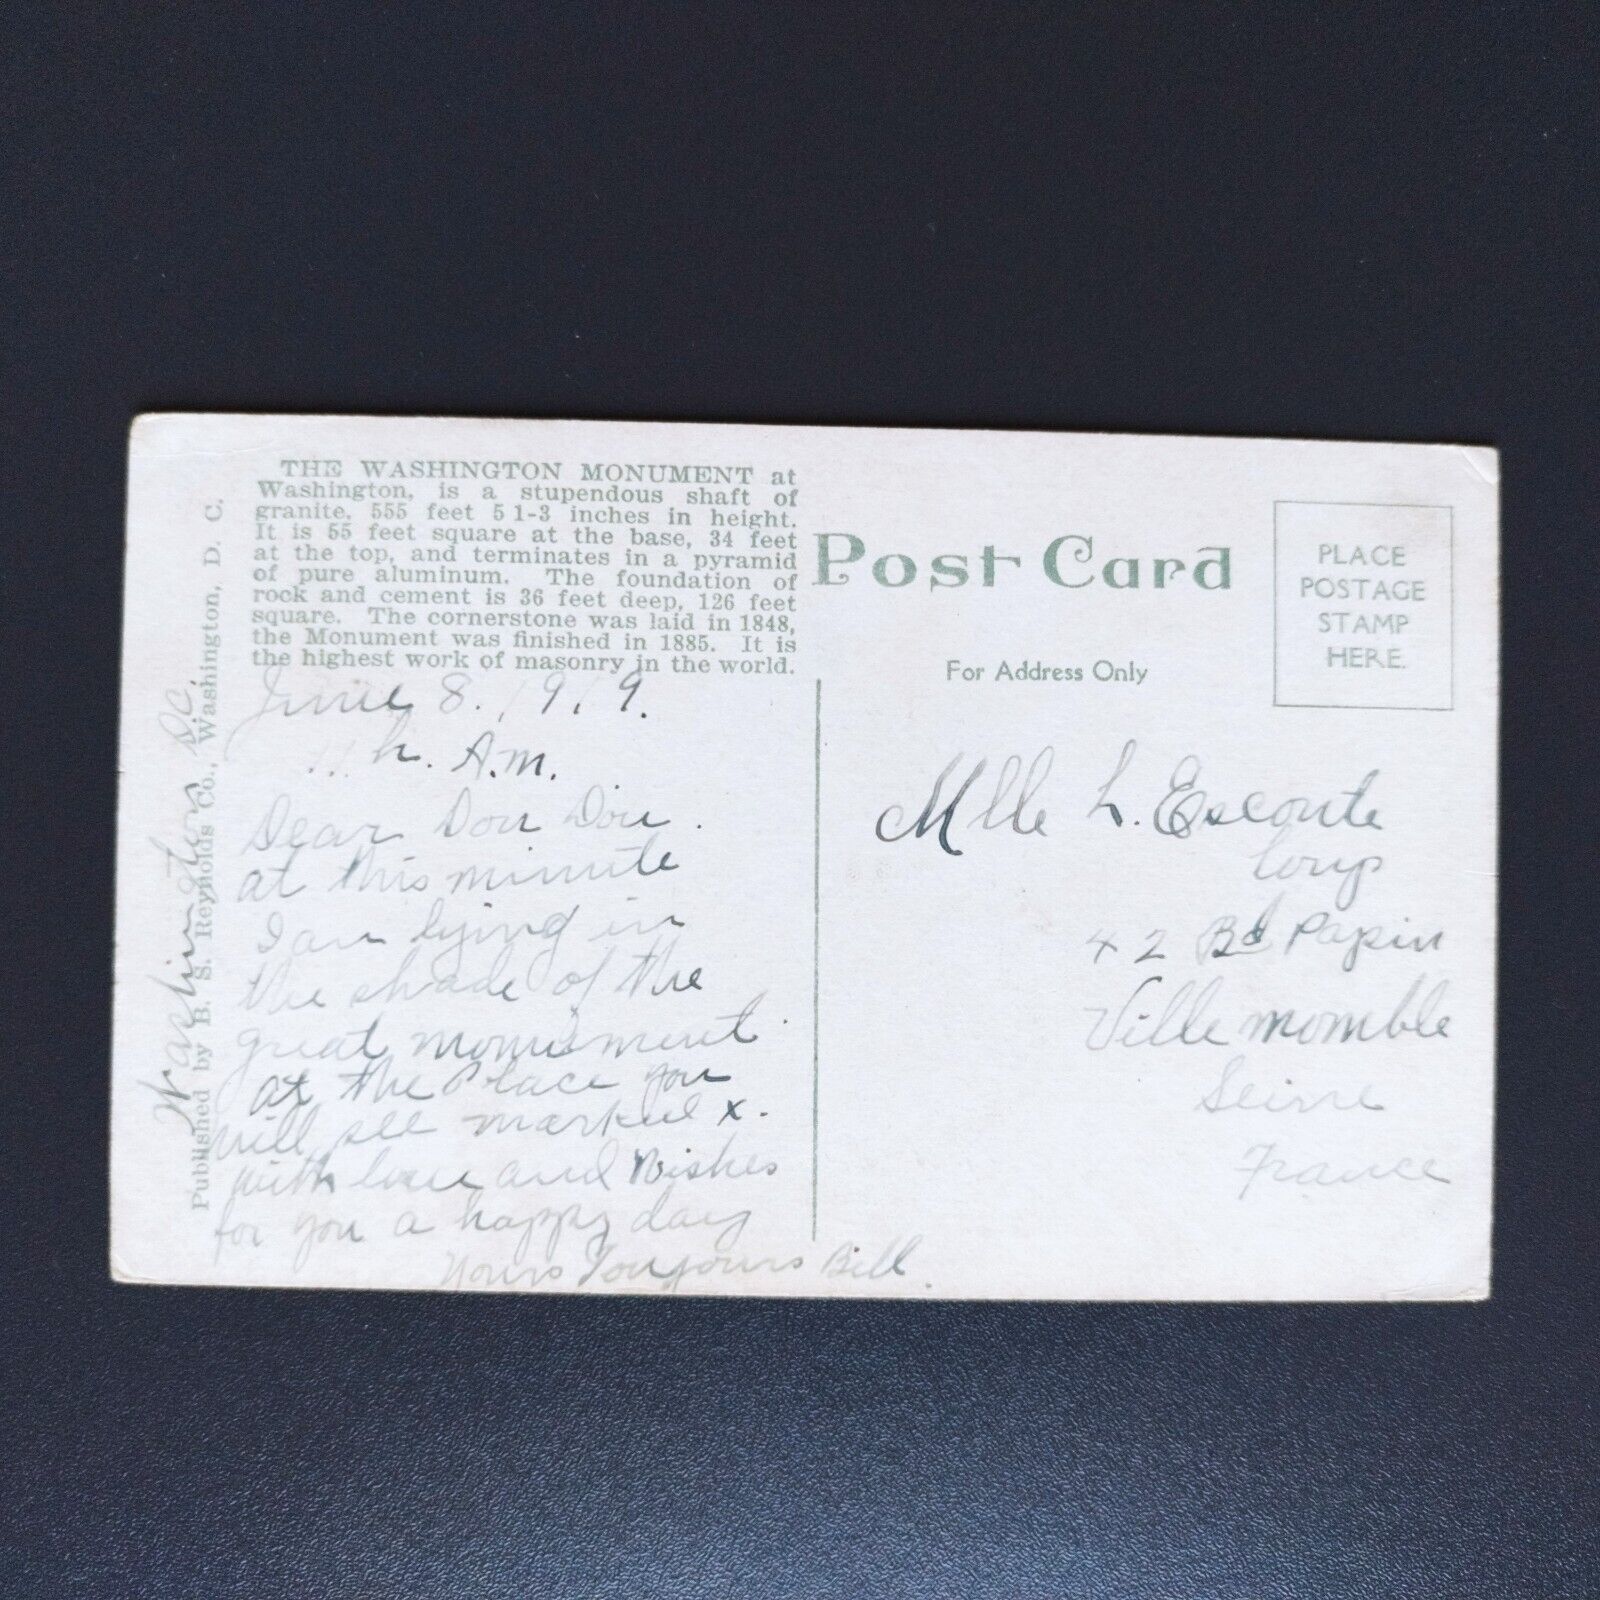 THE WASHINGTON MONUMENT at
Washington, is a stupendous shaft of
granite, 555 feet 5 1-3 inches in height.
It is 55 feet square at the base, 34 feet
at the top, and terminates in a pyramid
of pure aluminum. The foundation of
rock and cement is 36 feet deep, 126 feet
square. The cornerstone was laid in 1848,
the Monument was finished in 1885. It is
the highest work of masonry in the world.
Published by B. S. Reynolds Co., Washington, D. C.
Washington DC.
June 8. 1919.
11 h. A.M.
Dear Dou Dou.
at this minute
I am lying in
the shade of the
great monument.
at the Place you
will see marked x.
with love and Wishes
for you a happy day
Yours Toujours Bill.
Post Card
For Address Only
PLACE
POSTAGE
STAMP
HERE.
Mlle L. Escoute
loup
42 Bd Papin
Ville momble
Seine
France